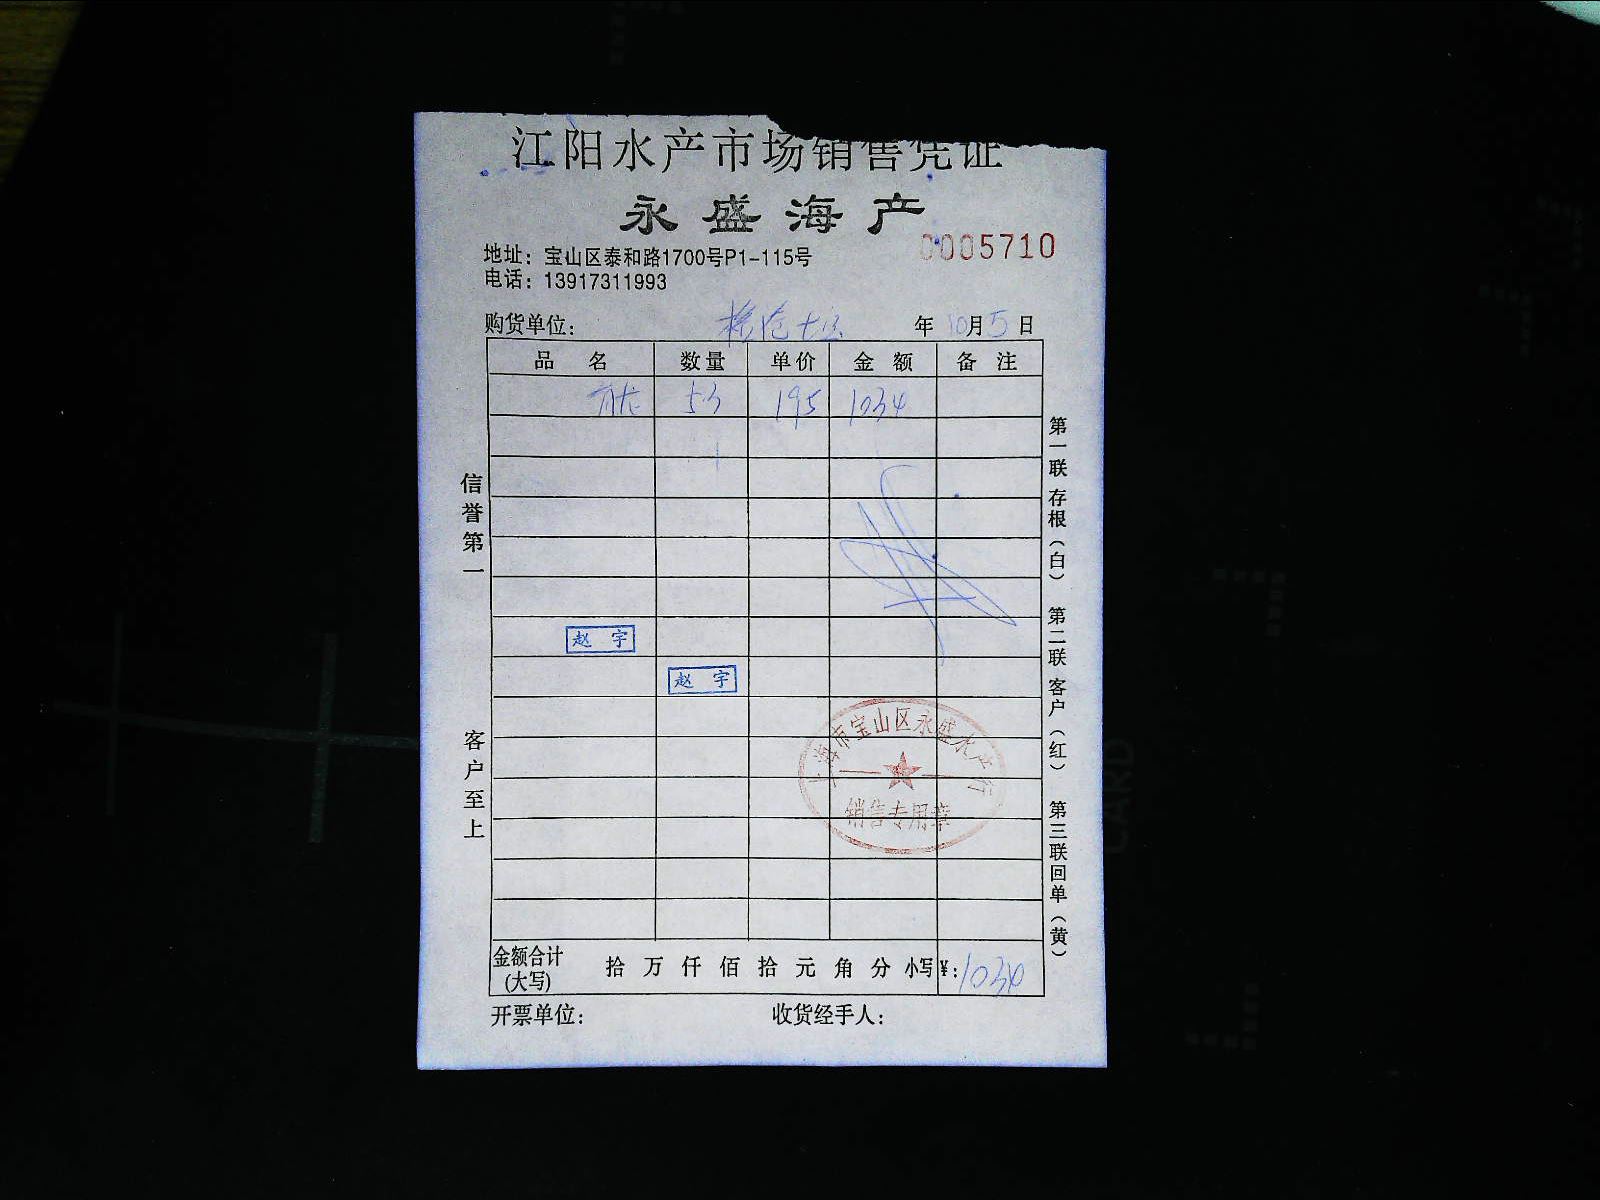 江阳水产市场销售凭证
永盛海产
0005710
地址：宝山区泰和路1700号P1-115号
电话：13917311993
购货单位： 年 10月5日
品名 数量 单价 金额 备注
53 195 1034
信誉第一
客户至上
赵宇
赵宇
上海市宝山区永盛水产行
销售专用章
第一联 存根（白） 第二联 客户（红） 第三联回单（黄）
金额合计(大写) 拾 万 仟 佰 拾 元 角 分 小写¥：1034
开票单位： 收货经手人：